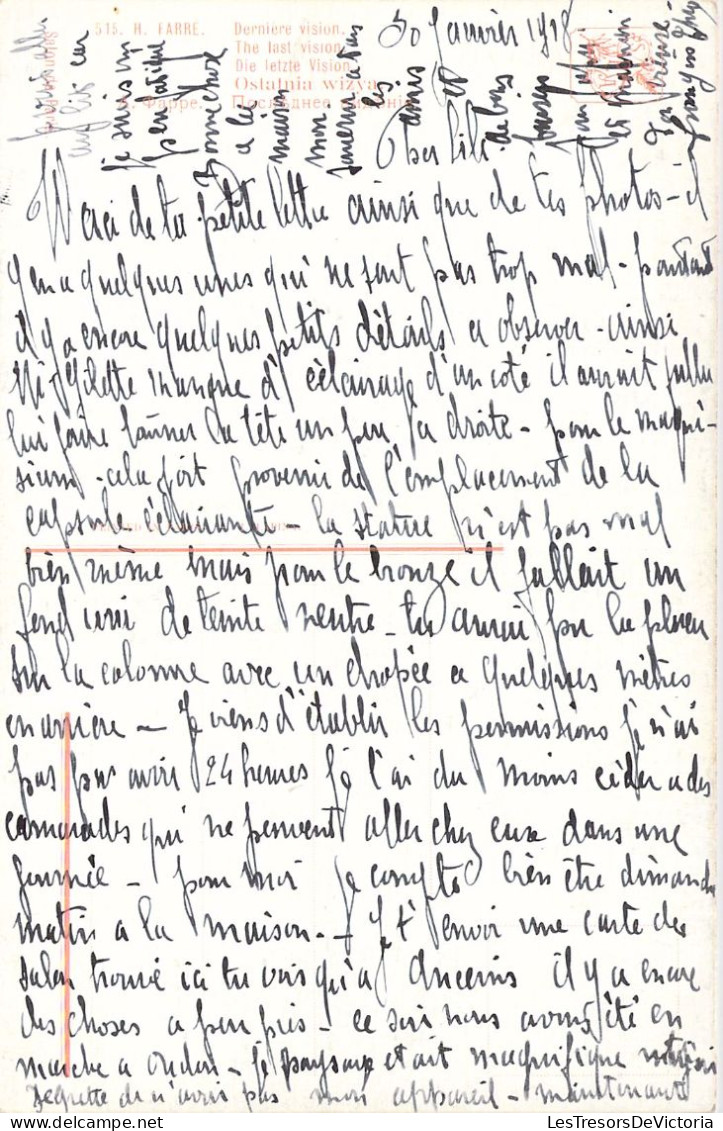 515. H. FARRE.
Dernière vision.
The last vision.
Die letzte Vision.
Ostatnia wizya
Фарре. Послѣднее
30 Janvier 1918
Cher
Merci de ta petite lettre ainsi que de tes photos - il
y en a quelques unes qui ne sont pas trop mal - pourtant
il y a encore quelques petits détails a observer - ainsi
manque d'éclairage d'un coté il aurait fallu
lui faire tourner la tête un peu a droite - pour le magné-
sium - cela doit provenir de l'emplacement de la
capsule éclairante - la statue n'est pas mal
bien même mais pour le bronze il fallait un
fond uni de teinte neutre - tu aurais pu la placer
sur la colonne avec un a quelques mètres
en arrière - Je viens d'établir les permissions je n'ai
pas pu avoir 24 heures je l'ai du moins céder a des
camarades qui ne peuvent aller chez eux dans une
journée - pour moi je compte bien être dimanche
matin a la maison - Je t'envoi une carte du
salon trouvé ici tu vois qu'a Ancenis il y a encore
des choses a peu près - ce soir nous avons été en
marche a Oudon - le paysage était magnifique
regretté de n'avoir pas mon appareil - maintenant
je suis un
peu fatigué
a les
maison
mon
les
amis
de bons
baisers